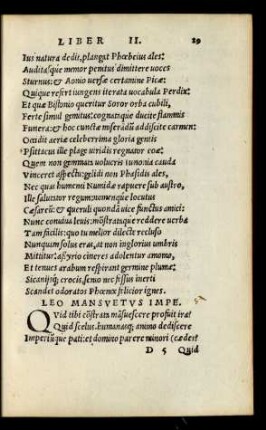 LIBER II. 29
Ius natura dedit, plangat Phœbeius ales:
Auditasque memor penitus dimittere uoces
Sturnus: & Aonio uersæ certamine Picæ:
Quique refert iungens iterata uocabula Perdix:
Et quæ Bistonio queritur Soror orba cubili,
Ferte simul gemitus: cognatasque ducite flammis
Funera: & hoc cunctæ miserādū addiscite carmen:
Occidit aeriæ celeberrima gloria gentis
Psittacus ille plagæ uiridis regnator eoæ:
Quem non gemmata uolucris iunonia cauda
Vinceret aspectu: gelidi non Phasidis ales,
Nec quas humenti Numidæ rapuere sub austro,
Ille salutator regum: nomenque locutus
Cæsareū: & queruli quondā uice functus amici:
Nunc conuiua leuis: mōstrataque reddere uerba
Tam facilis: quo tu melior dilecte recluso
Nunquam solus eras, at non inglorius umbris
Mittitur: assyrio cineres adolentur amomo,
Et tenues arabum respirant germine plumæ:
Sicanijsque crocis, senio nec fessus inerti
Scandet odoratos Phœnix felicior ignes.
LEO MANSVETVS IMPE.
QVid tibi cōstrata māsuescere profuit ira?
Quid scelus: humanasque animo dediscere
Imperiūque pati: et domino parere minori (cædes?
D 5 Quid